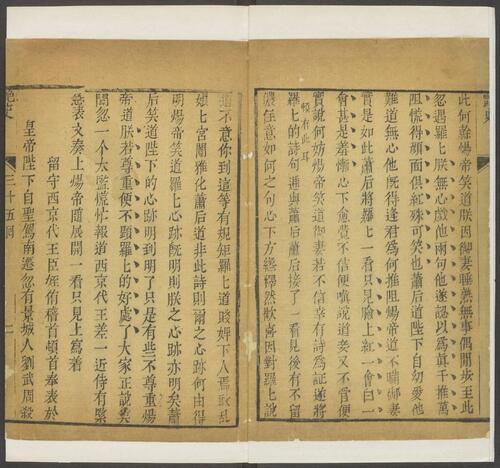 此何幹煬帝笑道朕因御妻睡熟無事偶閒步至此
忽遇羅上朕無心戲他兩句他遂認以爲眞千推萬
阻慌得顔面俱紅殊可笑也蕭后道陛下自幼愛他
難道無心他旣得逢君爲何推阻煬帝道不瞞御妻
實是如此蕭后將羅上一看只見臉上紅一會白一
會甚是羞慚心下愈覺不信便嗔說道妾又不管便
實說何妨煬帝笑道御妻若不信幸有詩爲証遂將
羅上的詩句遞與蕭后蕭后接了一看見後有不留
頻有此耳
儂任意如何之句心下方纔釋然歡喜因對羅上說
道不意你到這等有規矩羅上道政婢下人焉敢亂
娘上宮闈雅化蕭后道非此詩則爾之心跡何由得
明煬帝笑道羅上心跡旣明則朕之心跡亦明矣蕭
后笑道陛下的心跡明到明了只是有些三不尊重煬
帝道朕若尊重便不顯羅上的好處了大家正說笑
間忽一个太監慌忙報道西京代王差一近侍有緊
急表文奏上煬帝隨展開一看只見上寫着
留守西京代王臣侑稽首頓首奉表於
皇帝陛下自聖駕南遷忽有景城人劉武周殺
艷史
三十五囘
一